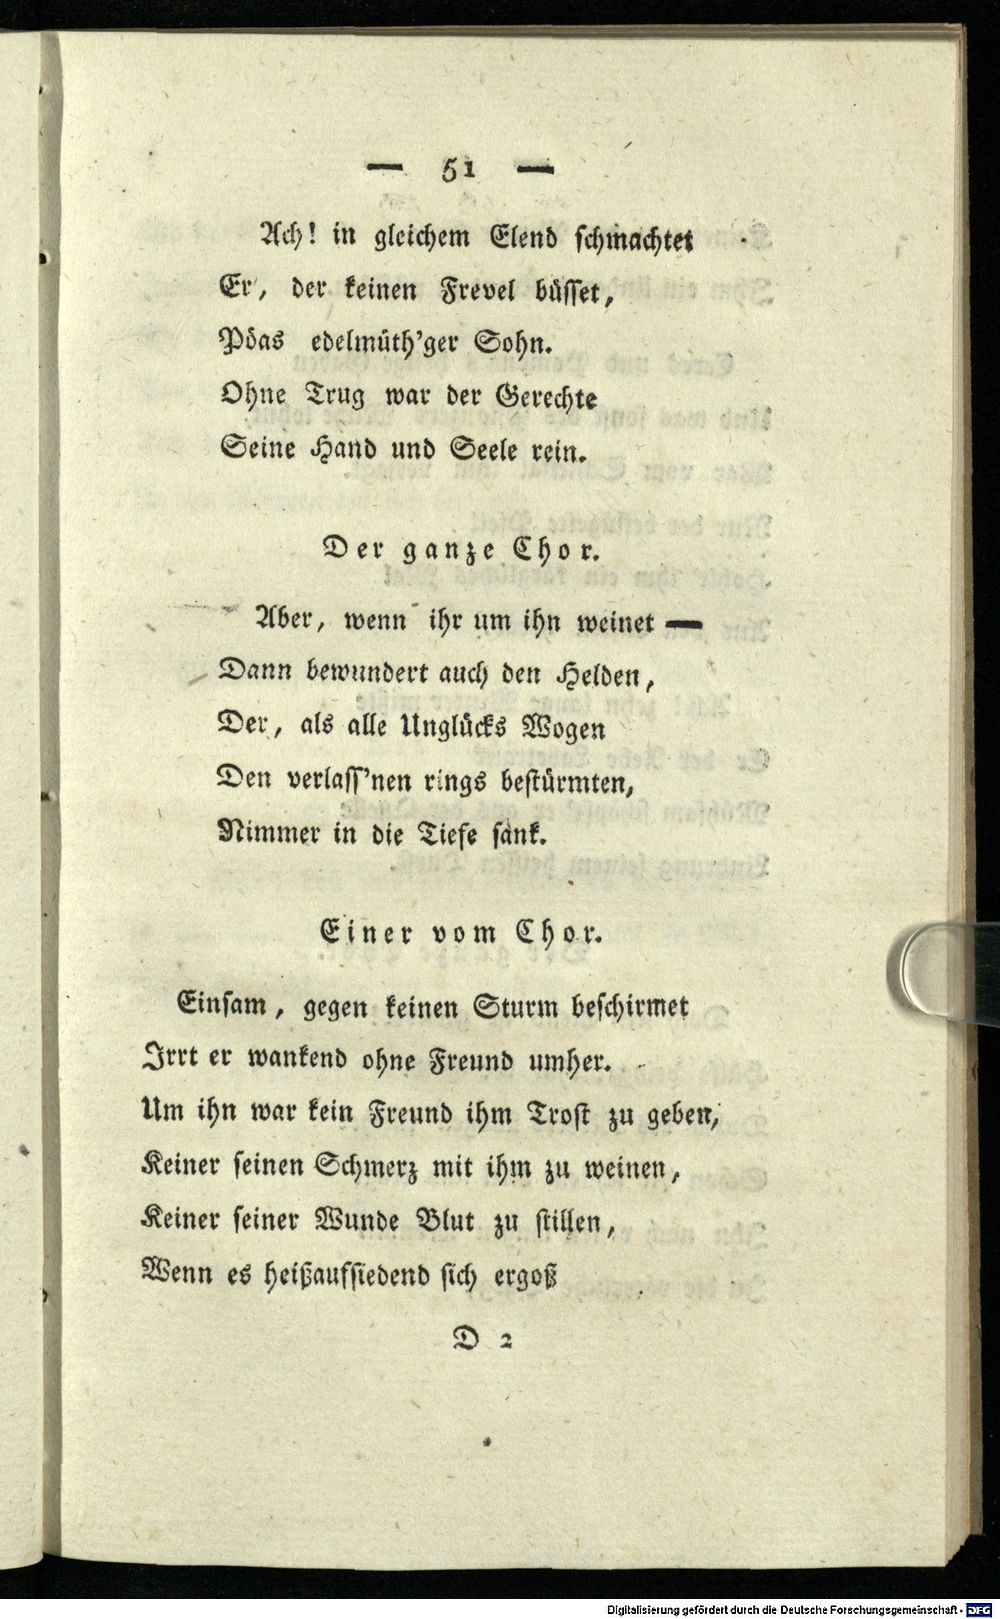 — 51 —
Ach! in gleichem Elend schmachtet
Er, der keinen Frevel büsset,
Pöas edelmüth'ger Sohn.
Ohne Trug war der Gerechte
Seine Hand und Seele rein.
Der ganze Chor.
Aber, wenn ihr um ihn weinet —
Dann bewundert auch den Helden,
Der, als alle Unglücks Wogen
Den verlass'nen rings bestürmten,
Nimmer in die Tiefe sank.
Einer vom Chor.
Einsam, gegen keinen Sturm beschirmet
Irrt er wankend ohne Freund umher.
Um ihn war kein Freund ihm Trost zu geben,
Keiner seinen Schmerz mit ihm zu weinen,
Keiner seiner Wunde Blut zu stillen,
Wenn es heißaufsiedend sich ergoß
D 2
Digitalisierung gefördert durch die Deutsche Forschungsgemeinschaft - DFG